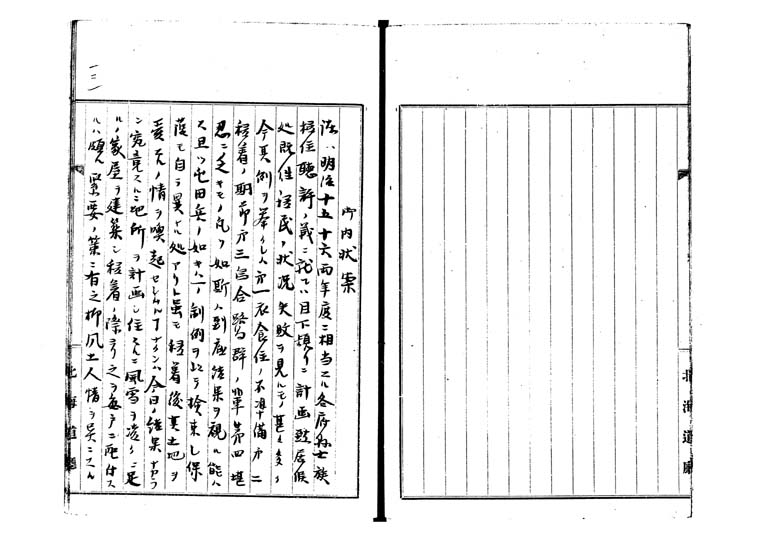 御内状案
陳ハ明治十五十六両年度ニ相当スル各府県士族
移住聴許ノ義ニ就テハ目下頻リニ計画致居候
処既住居民ノ状況失敗ヲ見ルモノ甚多シ
今其例ヲ挙クレハ第一衣食住ノ不準備第二
移着ノ期節第三烏合路傍群ノ輩第四堪
忍ニ乏キモノ凡ソ如斯ハ到底結果ヲ視ル能ハ
ス且ツ屯田兵ノ如キハ一ノ制例ヲ以テ検束し保
護モ自ラ異ナル処アリト雖モ移着後其土地ヲ
愛スルノ情ヲ喚起セシムル丁ナクンハ今日ノ結果ナカラ
ン究竟スルニ地所ヲ計画シ住スルニ風雪ヲ凌クニ足
ルノ家屋ヲ建築シ移着ノ際ヨリ之ヲ毎戸ニ配付ス
ルハ頗ル緊要ノ策ニ有之抑風土人情ヲ異ニスル
一二一
北海道廳
北海道廳